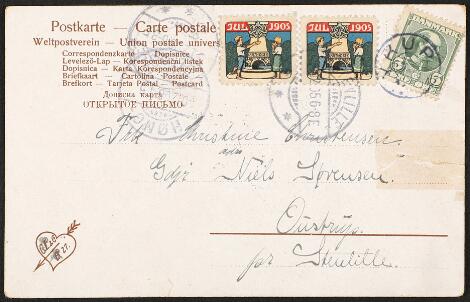 Postkarte — Carte postale
Weltpostverein — Union postale univers
Correspondenzkarte — Dopisnice
Levelező-Lap — Korespondenční listek
Dopisnica — Karta Korespondencyjna
Briefkaart — Cartolina Postale
Brefkort — Tarjeta Postal — Postcard
Дописна карта
ОТКРЫТОЕ ПИСЬМО
JUL 1905
JUL 1905
DANMARK
5 5
Christine Christensen
Gdjr Niels Sørensen
Oustrup
pr Stenlille